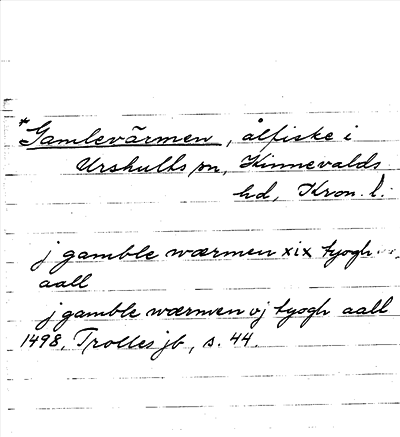 *Gamlevärmen, ålfiske i
Urshults sn, Kinnevalds
hd, Kron. l.
j gamble wærmen xix tyogh
aall
j gamble wærmen vj tyogh aall
1498. Trolles jb, s. 44.